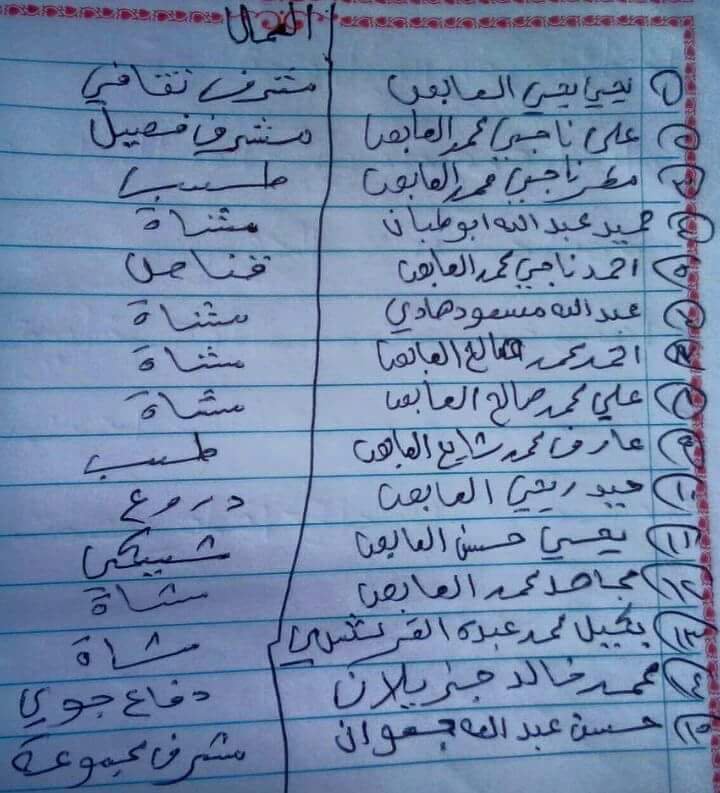 العمال
١ يحيى يحيى العابص مشرف ثقافي
٢ علي ناجي محمد العابص مشرف فصيل
٣ مطر ناجي محمد العابص طبيب
٤ حميد عبد الله ابو طبان مشاة
٥ احمد ناجي محمد العابص قناص
٦ عبد الله مسعود هادي مشاة
٧ احمد محمد صالح العابص مشاة
٨ علي محمد صالح العابص مشاة
٩ عارف محمد شايع العابص طبيب
١٠ يحيى العابص دروع
١١ يحيى حسن العابص
١٢ مجاهد محمد العابص مشاة
١٣ بكيل محمد عبده القريشي مشاة
١٤ محمد خالد جزيلان دفاع جوي
١٥ حسن عبد الله جعوان مشرف مجموعة